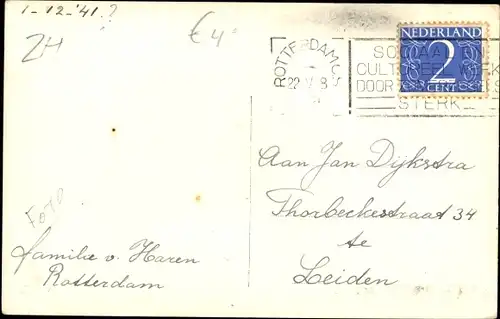 1-12-'41.?
ZH
€4
ROTTERDAM C.S
22 V 8
NEDERLAND
2
CENT
SOCIAAL
CULTUREEL WERK
DOOR
STERK
Aan Jan Dijkstra
Thorbeckestraat 34
te
Leiden
Foto
familie v. Haren
Rotterdam